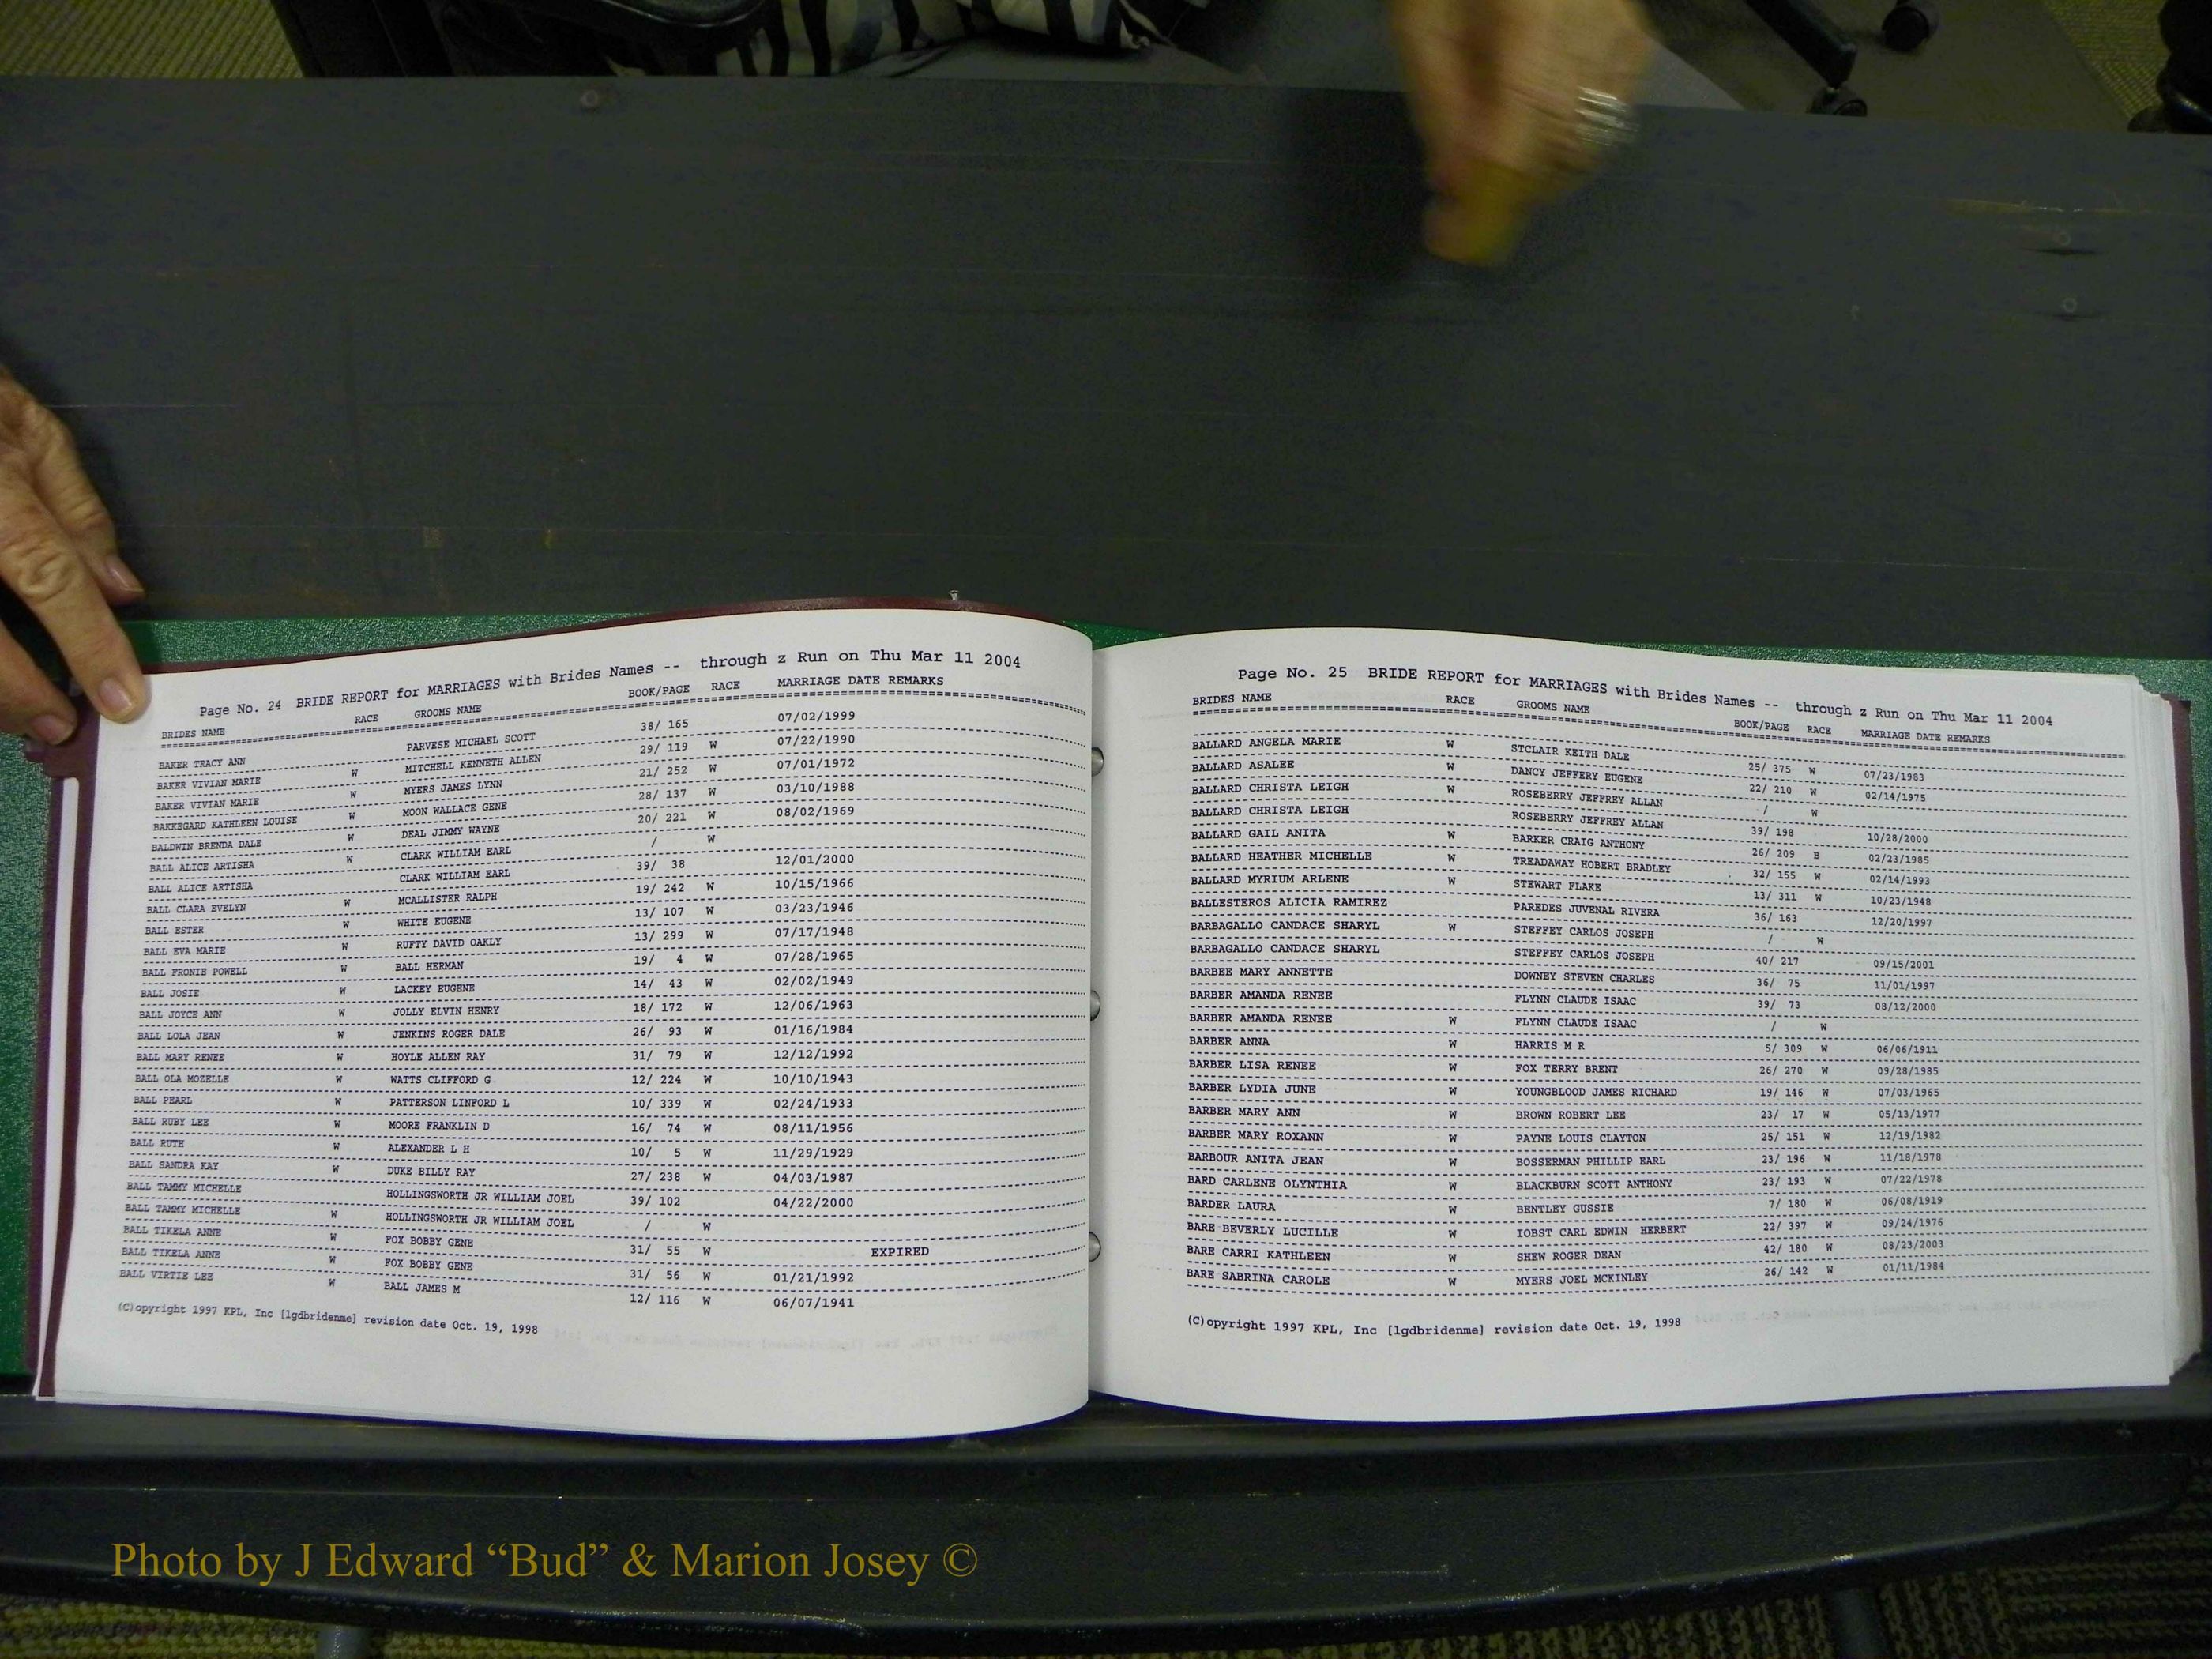 Page No. 24 BRIDE REPORT for MARRIAGES with Brides Names -- through z Run on Thu Mar 11 2004
BRIDES NAME RACE GROOMS NAME BOOK/PAGE RACE MARRIAGE DATE REMARKS
BAKER TRACY ANN PARVESE MICHAEL SCOTT 38/ 165 07/02/1999
BAKER VIVIAN MARIE W MITCHELL KENNETH ALLEN 29/ 119 W 07/22/1990
BAKER VIVIAN MARIE W MYERS JAMES LYNN 21/ 252 W 07/01/1972
BAKKEGARD KATHLEEN LOUISE W MOON WALLACE GENE 28/ 137 W 03/10/1988
BALDWIN BRENDA DALE W DEAL JIMMY WAYNE 20/ 221 W 08/02/1969
BALL ALICE ARTISHA W CLARK WILLIAM EARL / W
BALL ALICE ARTISHA CLARK WILLIAM EARL 39/ 38 12/01/2000
BALL CLARA EVELYN W MCALLISTER RALPH 19/ 242 W 10/15/1966
BALL ESTER W WHITE EUGENE 13/ 107 W 03/23/1946
BALL EVA MARIE W RUFTY DAVID OAKLY 13/ 299 W 07/17/1948
BALL FRONIE POWELL W BALL HERMAN 19/ 4 W 07/28/1965
BALL JOSIE W LACKEY EUGENE 14/ 43 W 02/02/1949
BALL JOYCE ANN W JOLLY ELVIN HENRY 18/ 172 W 12/06/1963
BALL LOLA JEAN W JENKINS ROGER DALE 26/ 93 W 01/16/1984
BALL MARY RENEE W HOYLE ALLEN RAY 31/ 79 W 12/12/1992
BALL OLA MOZELLE W WATTS CLIFFORD G 12/ 224 W 10/10/1943
BALL PEARL W PATTERSON LINFORD L 10/ 339 W 02/24/1933
BALL RUBY LEE W MOORE FRANKLIN D 16/ 74 W 08/11/1956
BALL RUTH W ALEXANDER L H 10/ 5 W 11/29/1929
BALL SANDRA KAY W DUKE BILLY RAY 27/ 238 W 04/03/1987
BALL TAMMY MICHELLE HOLLINGSWORTH JR WILLIAM JOEL 39/ 102 04/22/2000
BALL TAMMY MICHELLE W HOLLINGSWORTH JR WILLIAM JOEL / W
BALL TIKELA ANNE W FOX BOBBY GENE 31/ 55 W EXPIRED
BALL TIKELA ANNE W FOX BOBBY GENE 31/ 56 W 01/21/1992
BALL VIRTIE LEE W BALL JAMES M 12/ 116 W 06/07/1941
(C)opyright 1997 KPL, Inc [lgdbridenme] revision date Oct. 19, 1998
Page No. 25 BRIDE REPORT for MARRIAGES with Brides Names -- through z Run on Thu Mar 11 2004
BRIDES NAME RACE GROOMS NAME BOOK/PAGE RACE MARRIAGE DATE REMARKS
BALLARD ANGELA MARIE W STCLAIR KEITH DALE 25/ 375 W 07/23/1983
BALLARD ASALEE W DANCY JEFFERY EUGENE 22/ 210 W 02/14/1975
BALLARD CHRISTA LEIGH W ROSEBERRY JEFFREY ALLAN / W
BALLARD CHRISTA LEIGH ROSEBERRY JEFFREY ALLAN 39/ 198 10/28/2000
BALLARD GAIL ANITA W BARKER CRAIG ANTHONY 26/ 209 B 02/23/1985
BALLARD HEATHER MICHELLE W TREADAWAY HOBERT BRADLEY 32/ 155 W 02/14/1993
BALLARD MYRIUM ARLENE W STEWART FLAKE 13/ 311 W 10/23/1948
BALLESTEROS ALICIA RAMIREZ PAREDES JUVENAL RIVERA 36/ 163 12/20/1997
BARBAGALLO CANDACE SHARYL W STEFFEY CARLOS JOSEPH / W
BARBAGALLO CANDACE SHARYL STEFFEY CARLOS JOSEPH 40/ 217 09/15/2001
BARBEE MARY ANNETTE DOWNEY STEVEN CHARLES 36/ 75 11/01/1997
BARBER AMANDA RENEE FLYNN CLAUDE ISAAC 39/ 73 08/12/2000
BARBER AMANDA RENEE W FLYNN CLAUDE ISAAC / W
BARBER ANNA W HARRIS M R 5/ 309 W 06/06/1911
BARBER LISA RENEE W FOX TERRY BRENT 26/ 270 W 09/28/1985
BARBER LYDIA JUNE W YOUNGBLOOD JAMES RICHARD 19/ 146 W 07/03/1965
BARBER MARY ANN W BROWN ROBERT LEE 23/ 17 W 05/13/1977
BARBER MARY ROXANN W PAYNE LOUIS CLAYTON 25/ 151 W 12/19/1982
BARBOUR ANITA JEAN W BOSSERMAN PHILLIP EARL 23/ 196 W 11/18/1978
BARD CARLENE OLYNTHIA W BLACKBURN SCOTT ANTHONY 23/ 193 W 07/22/1978
BARDER LAURA W BENTLEY GUSSIE 7/ 180 W 06/08/1919
BARE BEVERLY LUCILLE W IOBST CARL EDWIN HERBERT 22/ 397 W 09/24/1976
BARE CARRI KATHLEEN W SHEW ROGER DEAN 42/ 180 W 08/23/2003
BARE SABRINA CAROLE W MYERS JOEL MCKINLEY 26/ 142 W 01/11/1984
(C)opyright 1997 KPL, Inc [lgdbridenme] revision date Oct. 19, 1998
Photo by J Edward “Bud” & Marion Josey ©